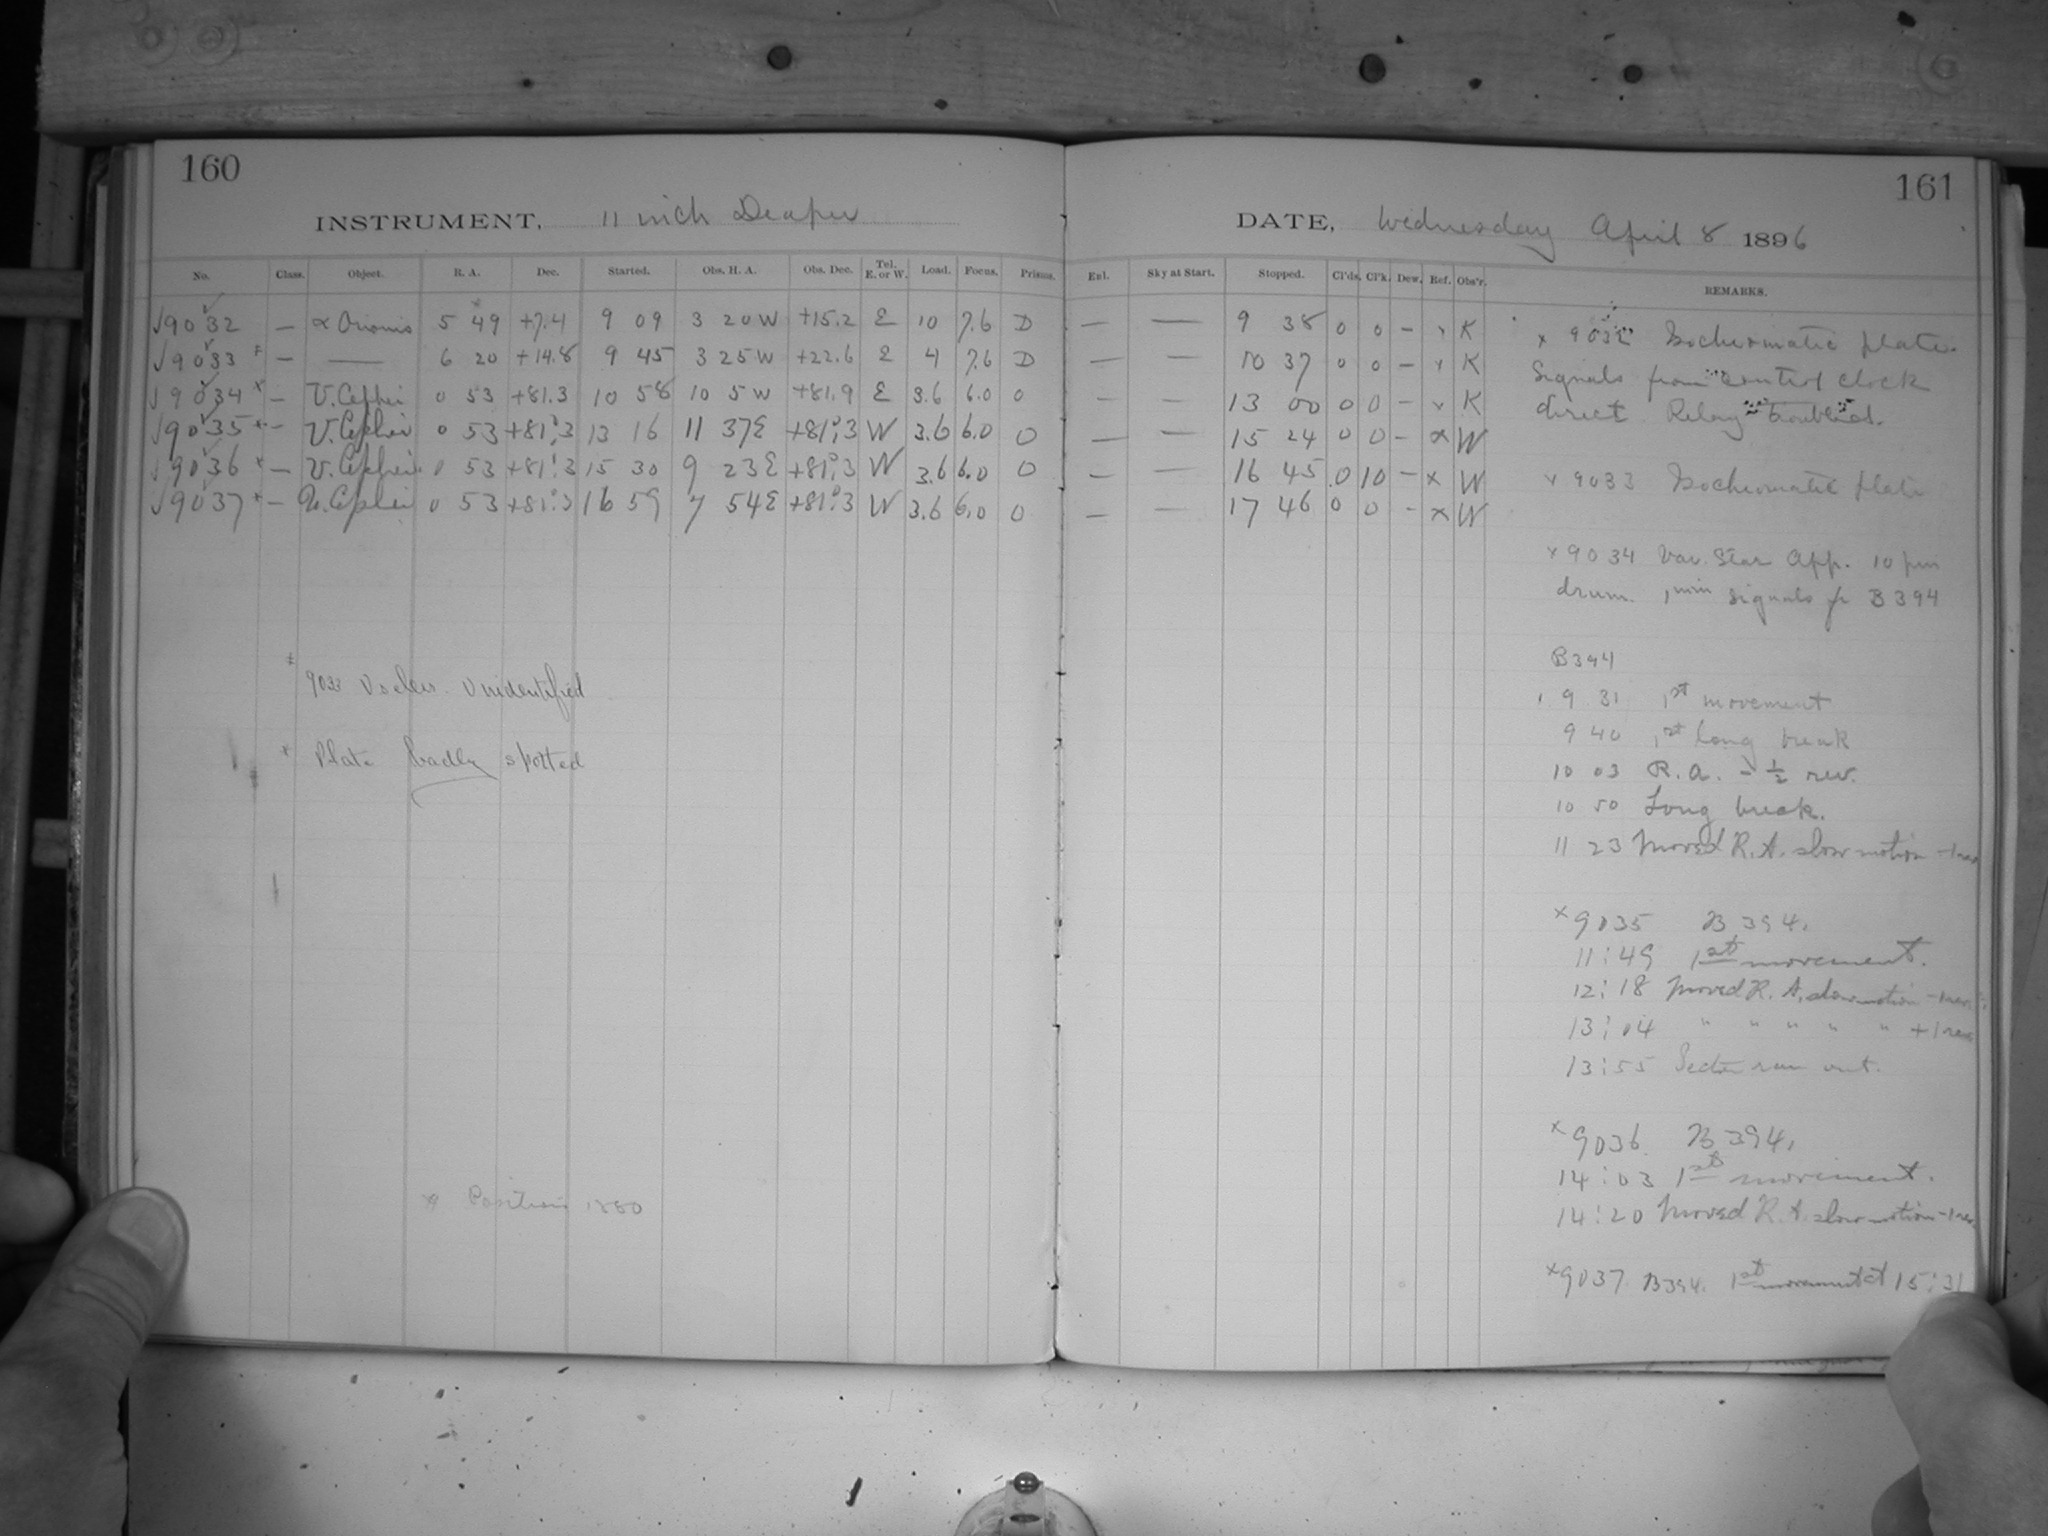 160
INSTRUMENT, 11 inch Draper
No. Class. Object. R. A. Dec. Started. Obs. H. A. Obs. Dec. Tel. E. or W. Load. Focus. Prisms.
√9032 — α Orionis 5 49 +7.4 9 09 3 20 W +15.2 E 10 7.6 D
√9033 ‡ — — 6 20 +14.8 9 45 3 25 W +22.6 E 4 7.6 D
√9034 x — U. Cephei 0 53 +81.3 10 58 10 5 W +81.9 E 3.6 6.0 0
√9035 x — U. Cephei 0 53 +81°.3 13 16 11 37 E +81°.3 W 3.6 6.0 0
√9036 x — U. Cephei 0 53 +81°.3 15 30 9 23 E +81°.3 W 3.6 6.0 0
√9037 x — U. Cephei 0 53 +81°.3 16 59 7 54 E +81°.3 W 3.6 6.0 0
‡ 9033 Useless. Unidentified
x Plate badly spotted
* Position 1880
161
DATE, Wednesday April 8 1896
Enl. Sky at Start. Stopped. Cl'ds. Cl'k. Dew. Ref. Obs'r. REMARKS.
— — 9 38 0 0 – x K
— — 10 37 0 0 – x K
— — 13 00 0 0 – x K
— — 15 24 0 0 – x W
— — 16 45 0 10 – x W
— — 17 46 0 0 – x W
x 9032 Isochromatic plate.
Signals from control clock
direct Relay troubled.
x 9033 Isochromatic plate
x 9034 Var. Star App. 10 pm
drum. 1 min signals fr B 394
B394
9 31 1st movement
9 40 1st Long break
10 03 R.A. – ½ rev.
10 50 Long break.
11 23 Moved R.A. slow motion –1 rev
x 9035 B 394.
11:49 1st movement.
12:18 Moved R.A. slow motion –1 rev
13:04 " " " " " +1 rev
13:55 Sector ran out.
x 9036 B 394.
14:03 1st movement.
14:20 Moved R.A. slow motion –1 rev
x 9037. B394. 1st movement at 15:31